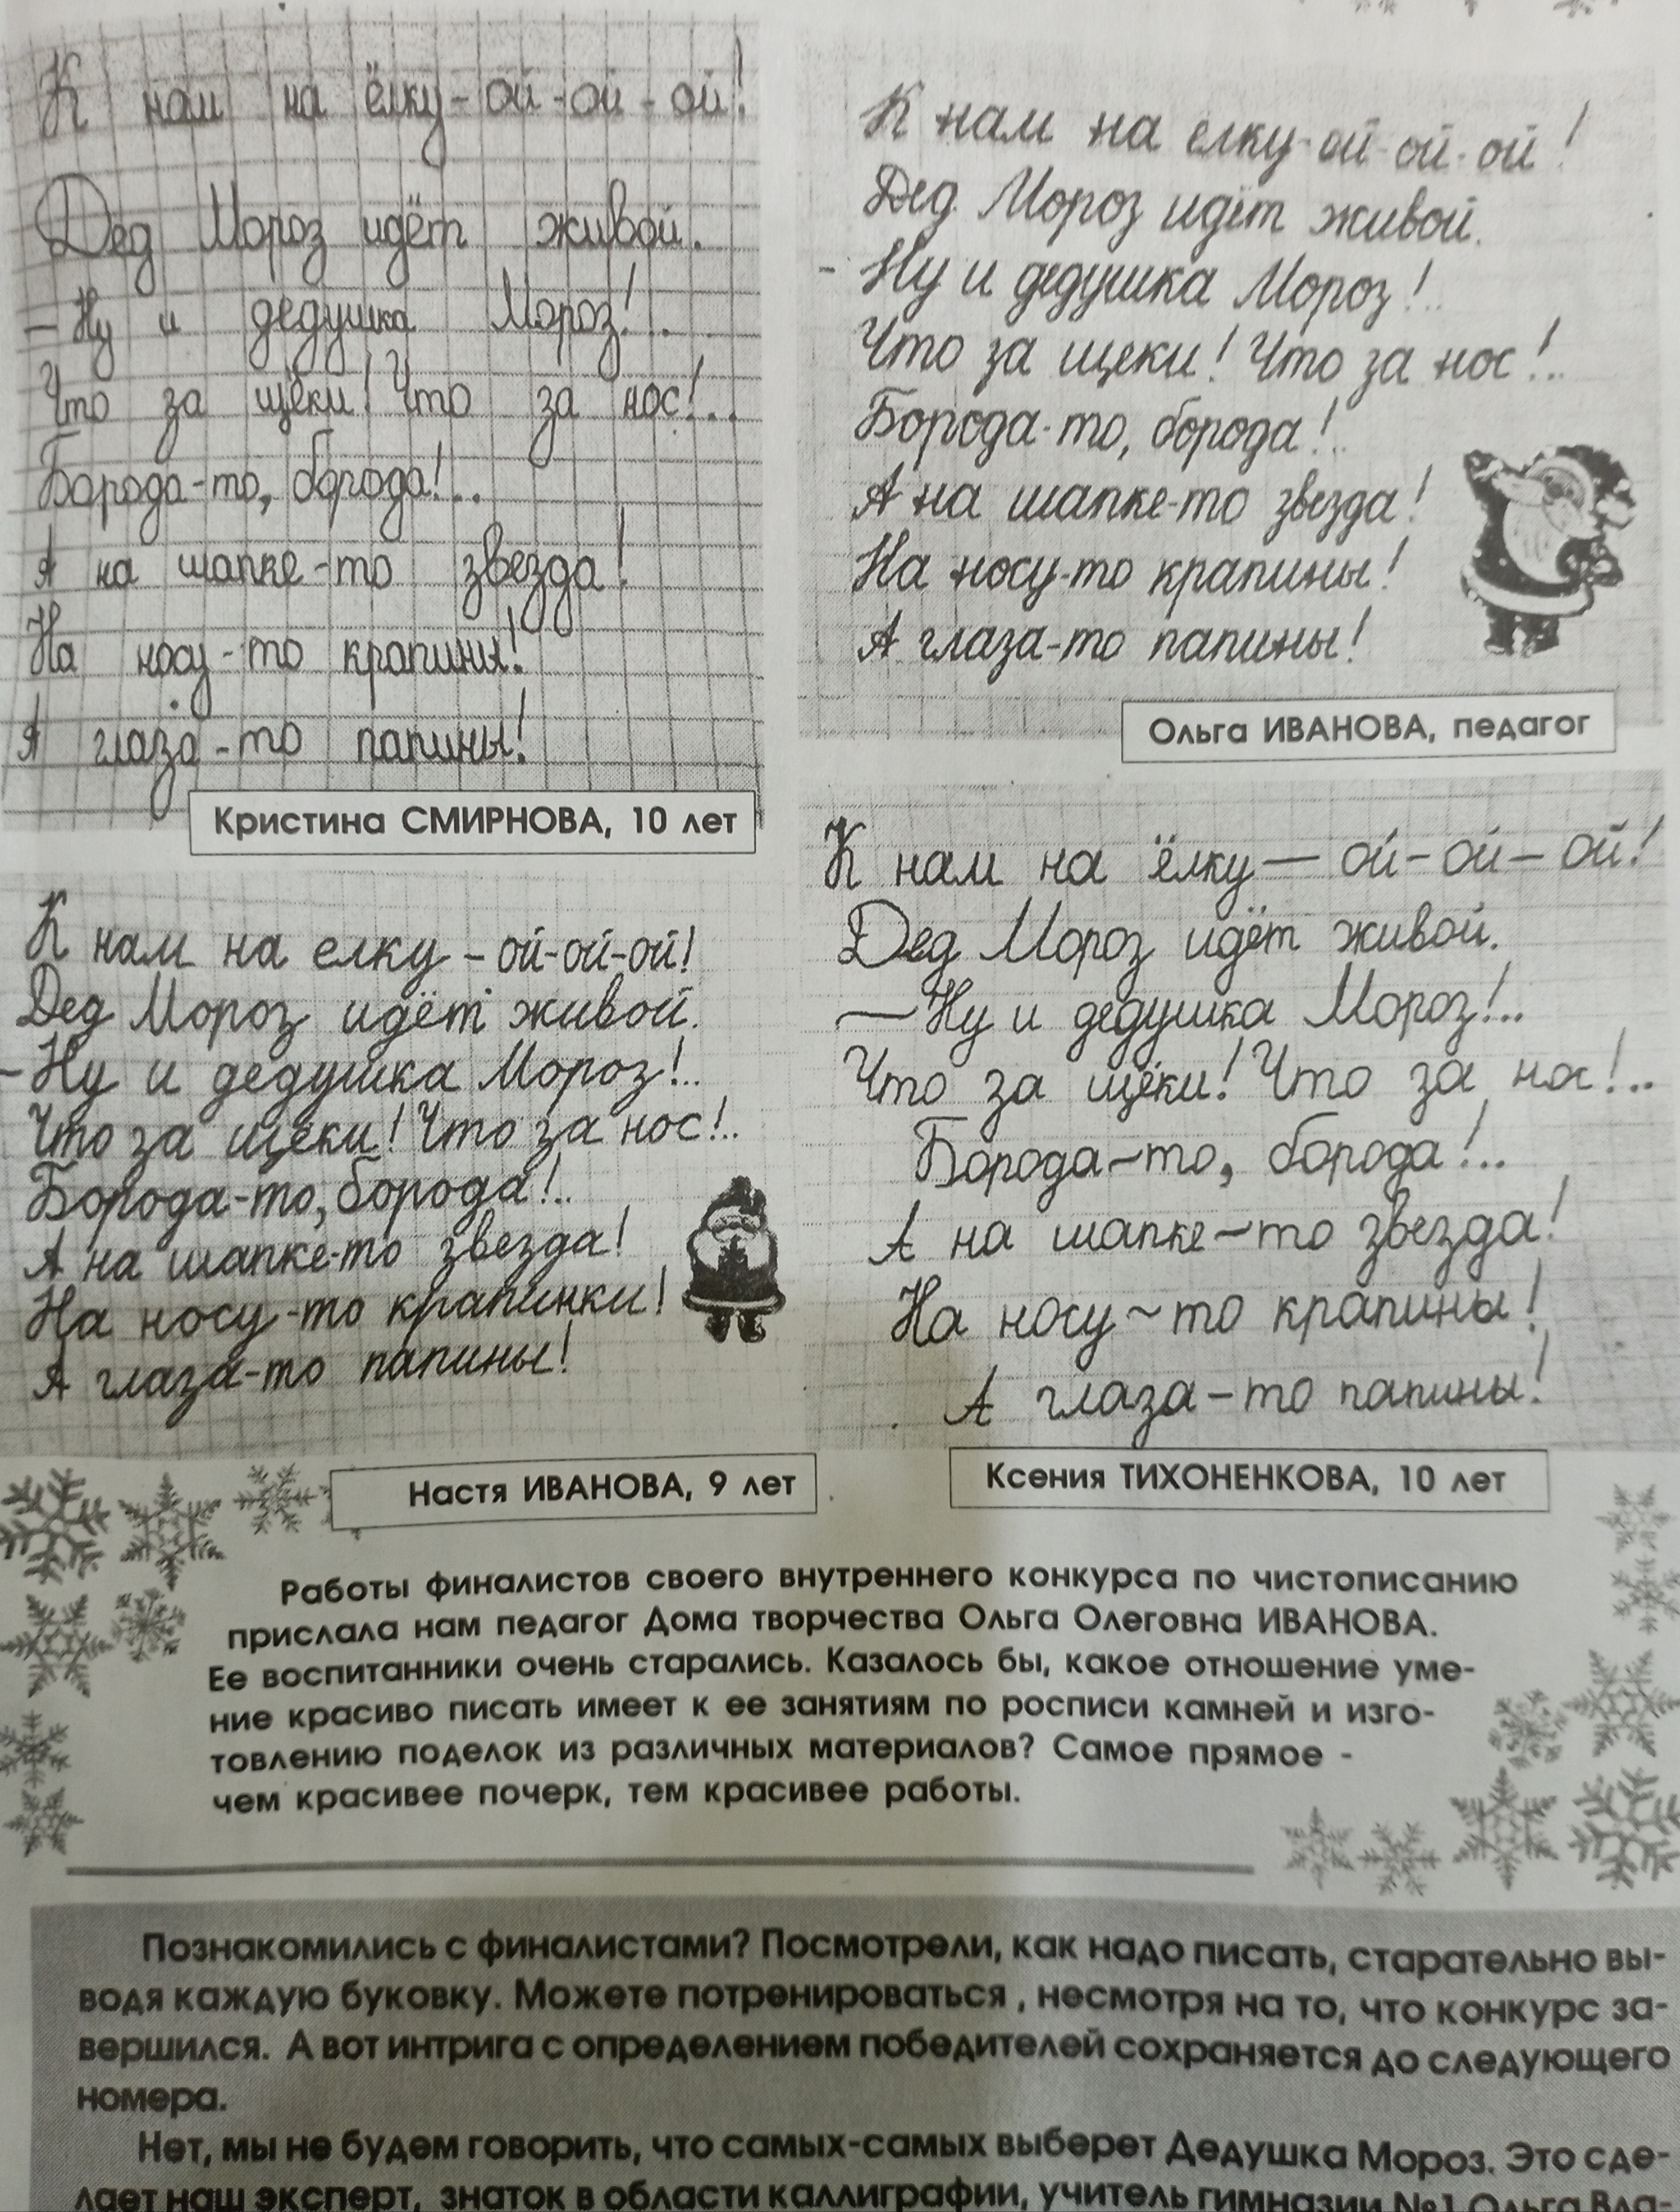 К нам на ёлку-ой-ой-ой!
Дед Мороз идёт живой.
- Ну и дедушка Мороз!..
Что за щёки! Что за нос!...
Борода-то, борода!..
А на шапке-то звезда!
На носу-то крапины!
А глаза-то папины!
Кристина СМИРНОВА, 10 лет
К нам на елку-ой-ой-ой!
Дед Мороз идёт живой.
- Ну и дедушка Мороз!..
Что за щеки! Что за нос!..
Борода-то, борода!..
А на шапке-то звезда!
На носу-то крапины!
А глаза-то папины!
Ольга ИВАНОВА, педагог
К нам на елку - ой-ой-ой!
Дед Мороз идёт живой.
- Ну и дедушка Мороз!..
Что за щёки! Что за нос!..
Борода-то, борода!..
А на шапке-то звезда!
На носу-то крапинки!
А глаза-то папины!
Настя ИВАНОВА, 9 лет
К нам на ёлку — ой-ой-ой!
Дед Мороз идёт живой.
— Ну и дедушка Мороз!..
Что за щёки! Что за нос!..
Борода-то, борода!..
А на шапке-то звезда!
На носу-то крапины!
А глаза-то папины!
Ксения ТИХОНЕНКОВА, 10 лет
Работы финалистов своего внутреннего конкурса по чистописанию
прислала нам педагог Дома творчества Ольга Олеговна ИВАНОВА.
Ее воспитанники очень старались. Казалось бы, какое отношение уме-
ние красиво писать имеет к ее занятиям по росписи камней и изго-
товлению поделок из различных материалов? Самое прямое -
чем красивее почерк, тем красивее работы.
Познакомились с финалистами? Посмотрели, как надо писать, старательно вы-
водя каждую буковку. Можете потренироваться , несмотря на то, что конкурс за-
вершился. А вот интрига с определением победителей сохраняется до следующего
номера.
Нет, мы не будем говорить, что самых-самых выберет Дедушка Мороз. Это сде-
лает наш эксперт, знаток в области каллиграфии, учитель гимназии №1 Ольга Вла-